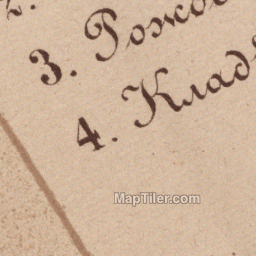 2.
3. Рожо
4. Клад
MapTiler.com